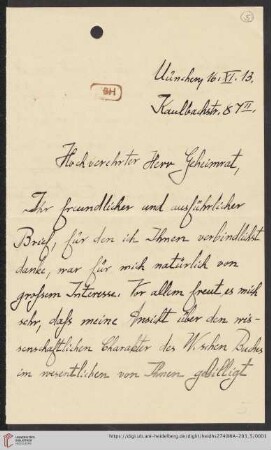 München, 16. XI. 13.
Kaulbachstr. 87 II.
Hochverehrter Herr Geheimrat,
Ihr freundlicher und ausführlicher
Brief, für den ich Ihnen verbindlichst
danke, war für mich natürlich von
grossem Interesse. Vor allem freut es mich
sehr, dafs meine Ansicht über den wis-
senschaftlichen Charakter des W.schen Buches
im wesentlichen von Ihnen gebilligt
https://digi.ub.uni-heidelberg.de/diglit/heidhs2740IIIA-203_5/0001